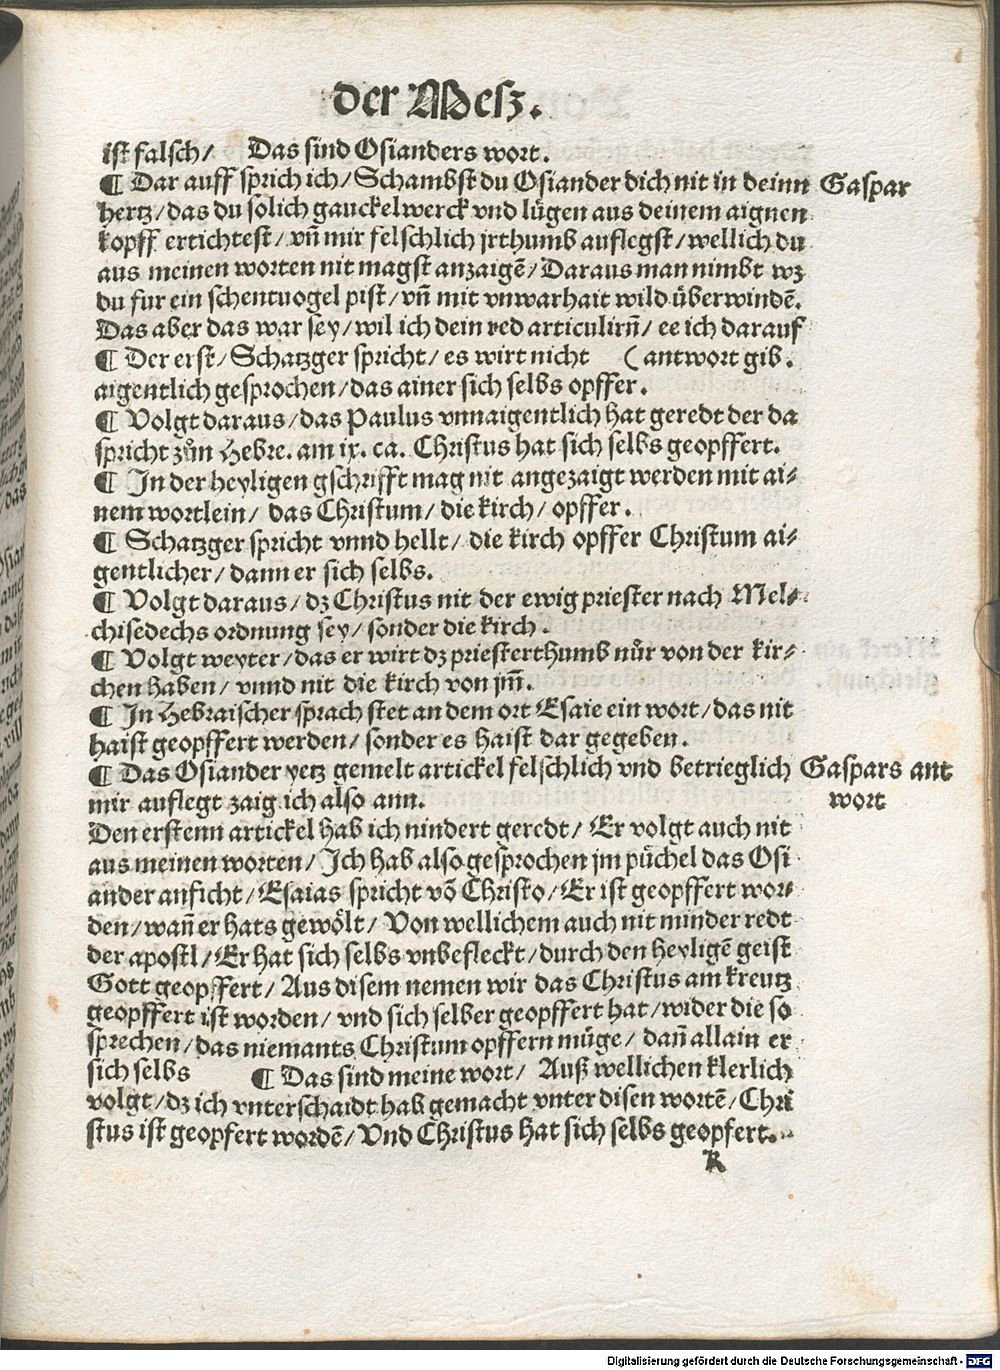 der Mesz.
ist falsch/ Das sind Osianders wort.
¶ Dar auff sprich ich/ Schambst du Osiander dich nit in deinn Gaspar
hertz/ das du solich gauckelwerck vnd lügen aus deinem aignen
kopff ertichtest/ vn̄ mir felschlich jrthumb auflegst/ wellich du
aus meinen worten nit magst anzaigē/ Daraus man nimbt wz
du fur ein schentuogel pist/ vn̄ mit vnwarhait wild überwindē.
Das aber das war sey/ wil ich dein red articulirn̄/ ee ich darauf
¶ Der erst/ Schatzger spricht/ es wirt nicht ( antwort gib.
aigentlich gesprochen/ das ainer sich selbs opffer.
¶ Volgt daraus/ das Paulus vnnaigentlich hat geredt der da
spricht zůn Hebre. am ix. ca. Christus hat sich selbs geopffert.
¶ In der heyligen gschrifft mag nit angezaigt werden mit ai⸗
nem wortlein/ das Christum/ die kirch/ opffer.
¶ Schatzger spricht vnnd hellt/ die kirch opffer Christum ai⸗
gentlicher/ dann er sich selbs.
¶ Volgt daraus/ dz Christus nit der ewig priester nach Mel⸗
chisedechs ordnung sey/ sonder die kirch.
¶ Volgt weyter/ das er wirt dz priesterthumb nůr von der kir⸗
chen haben/ vnnd nit die kirch von jm̄.
¶ In Hebraischer sprach stet an dem ort Esaie ein wort/ das nit
haist geopffert werden/ sonder es haist dar gegeben.
¶ Das Osiander yetz gemelt artickel felschlich vnd betrieglich Gaspars ant
mir auflegt zaig ich also ann. wort
Den erstenn artickel hab ich nindert geredt/ Er volgt auch nit
aus meinen worten/ Ich hab also gesprochen jm püchel das Osi
ander anficht/ Esaias spricht vō Christo/ Er ist geopffert wor⸗
den/ wan̄ er hats gewölt/ Von wellichem auch nit minder redt
der apostl/ Er hat sich selbs vnbefleckt/ durch den heyligē geist
Gott geopffert/ Aus disem nemen wir das Christus am kreutz
geopffert ist worden/ vnd sich selber geopffert hat/ wider die so
sprechen/ das niemants Christum opffern müge/ dan̄ allain er
sich selbs ¶ Das sind meine wort/ Auß wellichen klerlich
volgt/ dz ich vnterschaidt hab gemacht vnter disen wortē/ Chri
stus ist geopfert wordē/ Vnd Christus hat sich selbs geopfert.
K
Digitalisierung gefördert durch die Deutsche Forschungsgemeinschaft - DFG